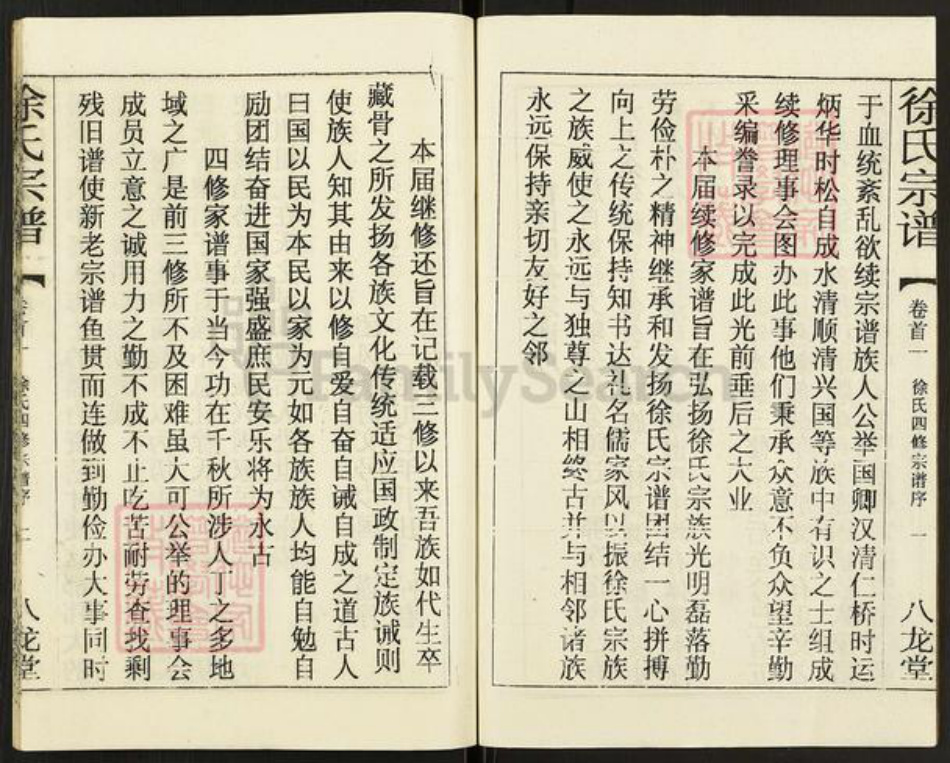 徐氏宗谱
卷首一
徐氏四修宗谱序
一
八龙堂
于血统紊乱欲续宗谱族人公举国卿汉清仁桥时运
炳华时松自成水清顺清兴国等族中有识之士组成
续修理事会图办此事他们秉承众意不负众望辛勤
采编誊录以完成此光前垂后之大业
本届续修家谱旨在弘扬徐氏宗族光明磊落勤
劳俭朴之精神继承和发扬徐氏宗谱团结一心拼搏
向上之传统保持知书达礼名儒家风以振徐氏宗族
之族威使之永远与独尊之山相终古并与相邻诸族
永远保持亲切友好之邻
本届继修还旨在记载三修以来吾族如代生卒
藏骨之所发扬各族文化传统适应国政制定族诫则
使族人知其由来以修自爱自奋自诫自成之道古人
曰国以民为本民以家为元如各族族人均能自勉自
励团结奋进国家强盛庶民安乐将为永古
四修家谱事于当今功在千秋所涉人丁之多地
域之广是前三修所不及困难虽大可公举的理事会
成员立意之诚用力之勤不成不止吃苦耐劳查找剩
残旧谱使新老宗谱鱼贯而连做到勤俭办大事同时
徐氏宗谱
卷首一
徐氏四修宗谱序
二
八龙堂
FamilySearch